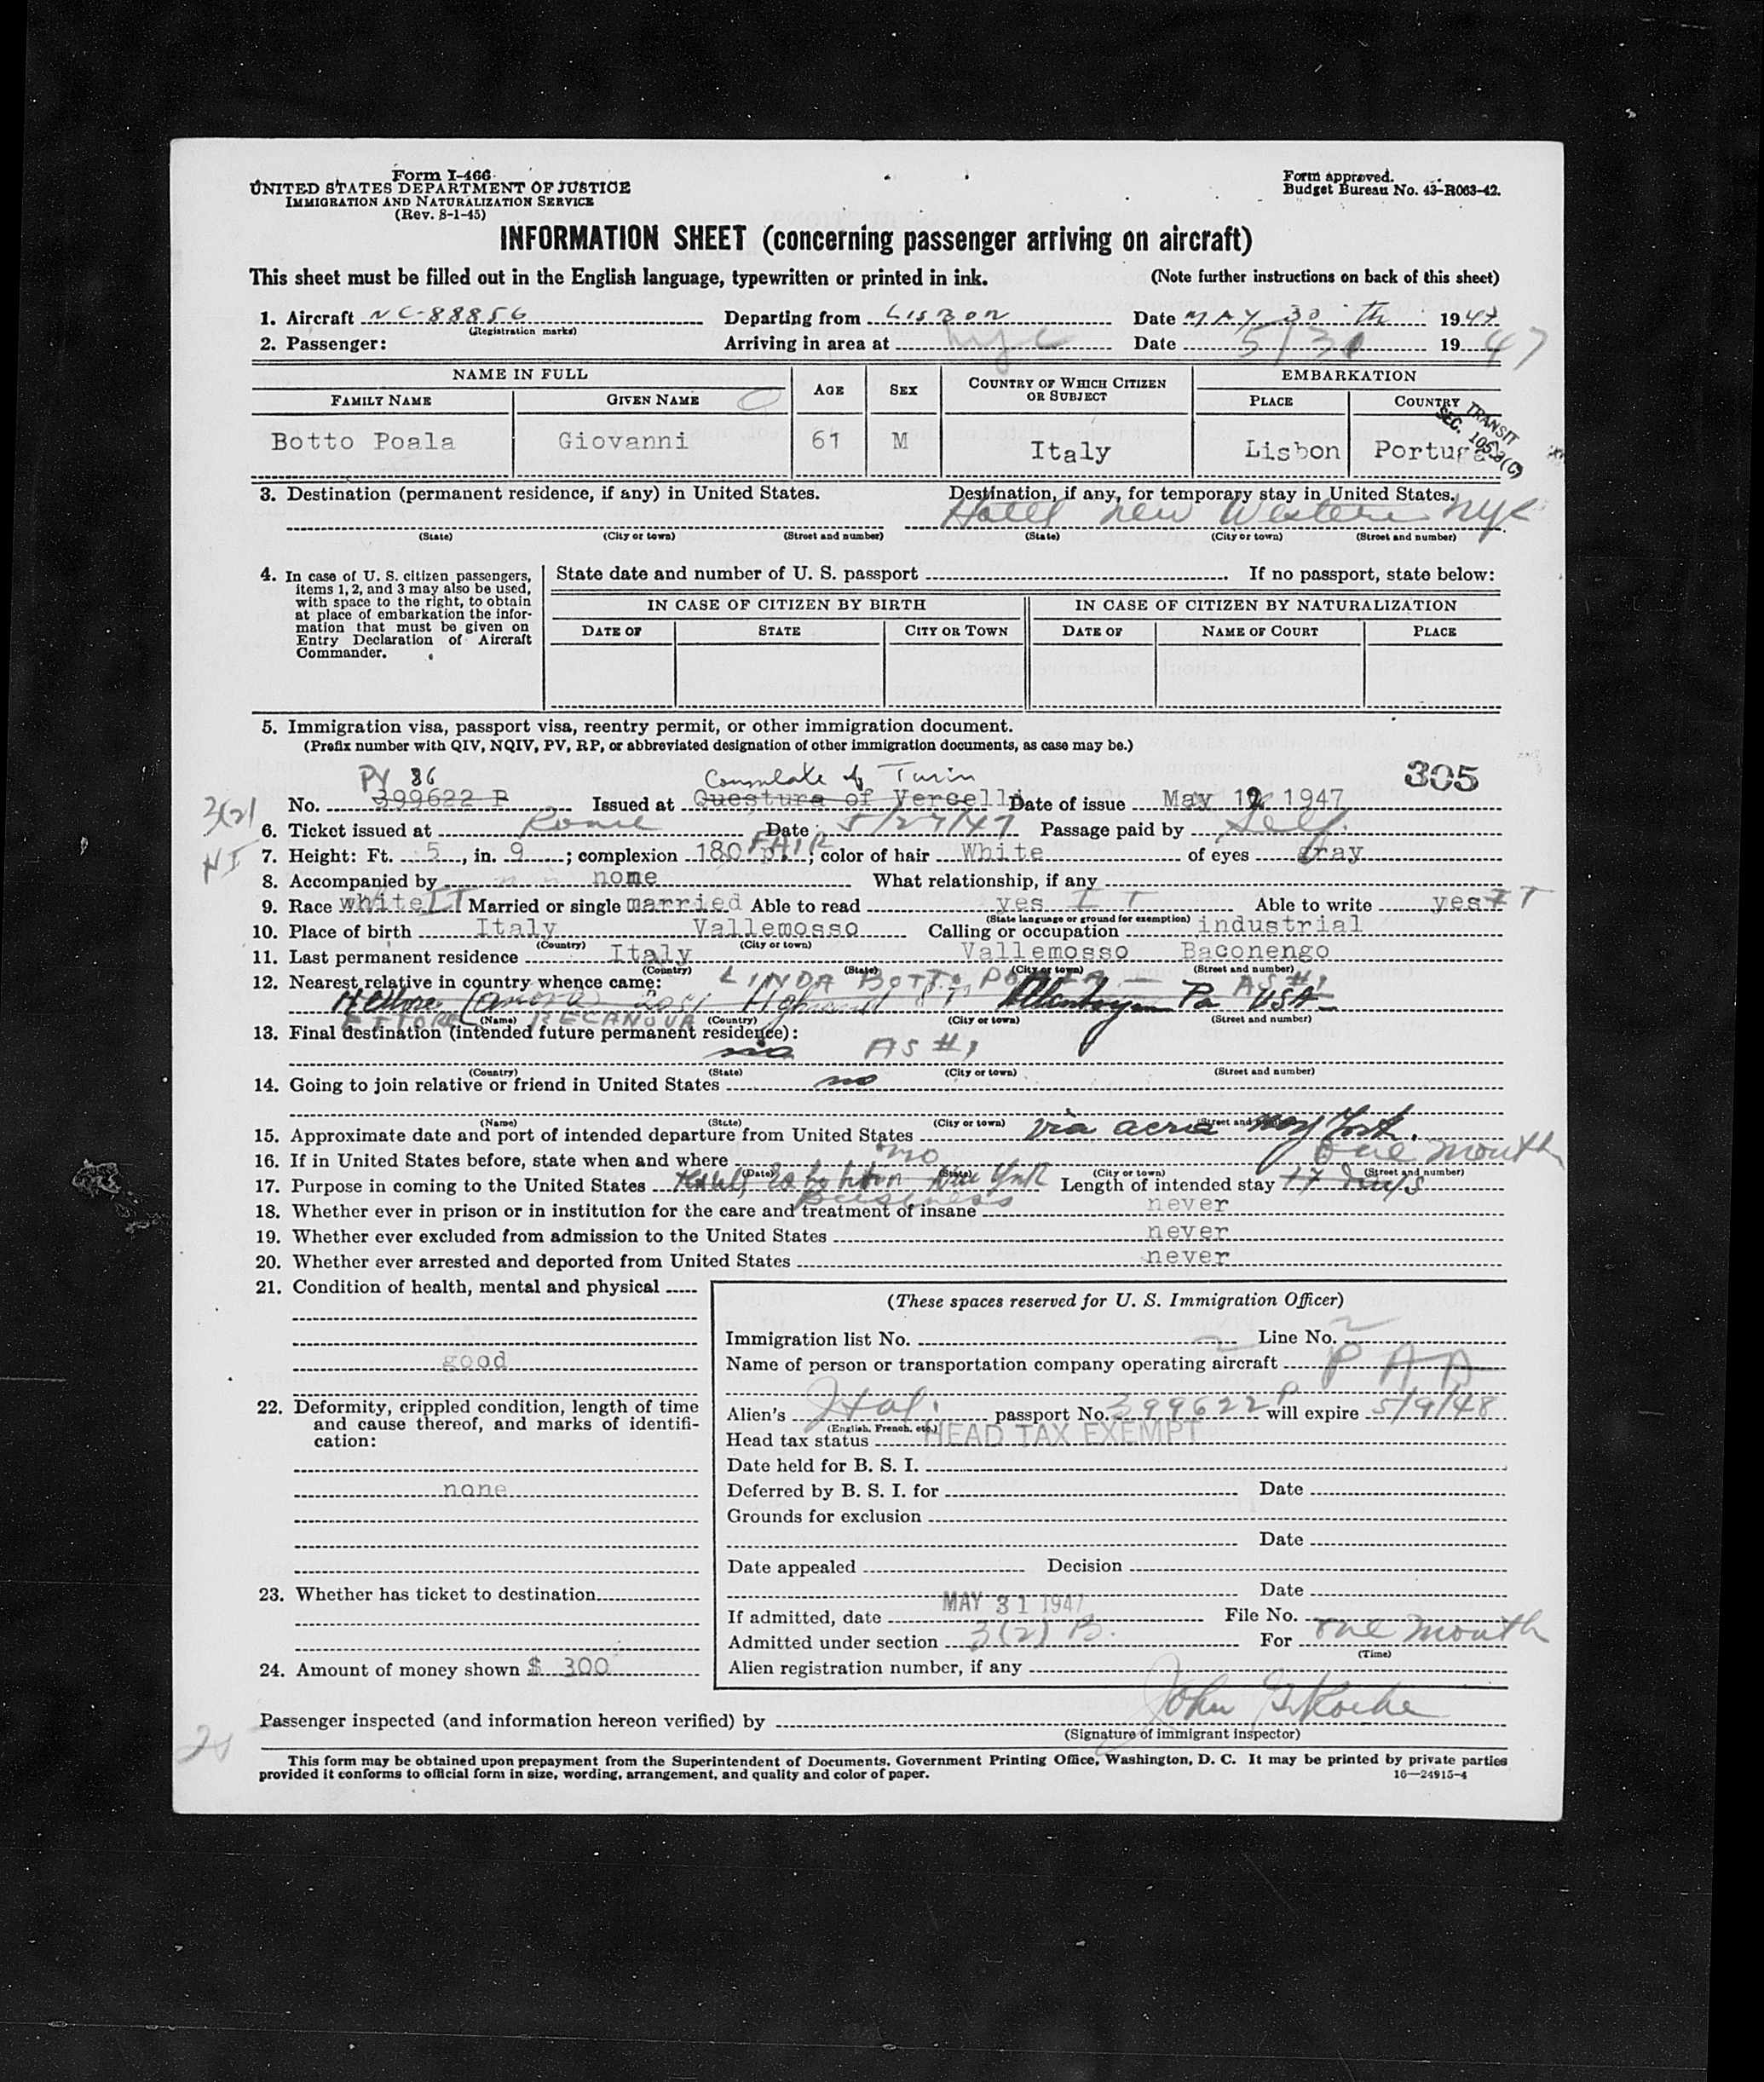 Form I-466
UNITED STATES DEPARTMENT OF JUSTICE
IMMIGRATION AND NATURALIZATION SERVICE
(Rev. 8-1-45)
Form approved.
Budget Bureau No. 43-R063-42.
INFORMATION SHEET (concerning passenger arriving on aircraft)
This sheet must be filled out in the English language, typewritten or printed in ink. (Note further instructions on back of this sheet)
1. Aircraft NC-88856 Departing from LISBON Date MAY 30 th 1947
(Registration marks)
2. Passenger: Arriving in area at nyc Date 5/31 1947
NAME IN FULL AGE SEX COUNTRY OF WHICH CITIZEN OR SUBJECT EMBARKATION
FAMILY NAME GIVEN NAME PLACE COUNTRY
TRANSIT
SEC. 105.3(C)
Botto Poala Giovanni 61 M Italy Lisbon Portugal
3. Destination (permanent residence, if any) in United States. Destination, if any, for temporary stay in United States.
Hotel new Western nyc
(State) (City or town) (Street and number) (State) (City or town) (Street and number)
4. In case of U. S. citizen passengers, items 1, 2, and 3 may also be used, with space to the right, to obtain at place of embarkation the information that must be given on Entry Declaration of Aircraft Commander.
State date and number of U. S. passport If no passport, state below:
IN CASE OF CITIZEN BY BIRTH IN CASE OF CITIZEN BY NATURALIZATION
DATE OF STATE CITY OR TOWN DATE OF NAME OF COURT PLACE
5. Immigration visa, passport visa, reentry permit, or other immigration document.
(Prefix number with QIV, NQIV, PV, RP, or abbreviated designation of other immigration documents, as case may be.)
PV 86 Consulate of Turin 305
3(2)
No. 399622 P Issued at Questura of Vercelli Date of issue May 12 1947
6. Ticket issued at Rome Date 5/27/47 Passage paid by Self
NI
7. Height: Ft. 5, in. 9; complexion 180 p. FAIR; color of hair White of eyes gray
8. Accompanied by none What relationship, if any
9. Race white IT Married or single married Able to read yes IT Able to write yes IT
(State language or ground for exemption)
10. Place of birth Italy Vallemosso Calling or occupation industrial
(Country) (City or town)
11. Last permanent residence Italy Vallemosso Baconengo
(Country) (State) (City or town) (Street and number)
12. Nearest relative in country whence came: LINDA BOTTO POALA - AS #1
Pa USA
ETTORE
(Name) (Country) (City or town) (Street and number)
13. Final destination (intended future permanent residence):
no AS #1
(Country) (State) (City or town) (Street and number)
14. Going to join relative or friend in United States no
(Name) (State) (City or town) (Street and number)
15. Approximate date and port of intended departure from United States via aerea New York.
16. If in United States before, state when and where no
(Date) (State) (City or town) (Street and number)
one month
17. Purpose in coming to the United States New York Length of intended stay 17 days
business
18. Whether ever in prison or in institution for the care and treatment of insane never
19. Whether ever excluded from admission to the United States never
20. Whether ever arrested and deported from United States never
21. Condition of health, mental and physical
good
22. Deformity, crippled condition, length of time and cause thereof, and marks of identification:
none
23. Whether has ticket to destination
24. Amount of money shown $ 300
(These spaces reserved for U. S. Immigration Officer)
Immigration list No. 2 Line No. 2
Name of person or transportation company operating aircraft PAA
Alien's Ital. passport No. 399622 P will expire 5/9/48
(English, French, etc.)
Head tax status HEAD TAX EXEMPT
Date held for B. S. I.
Deferred by B. S. I. for Date
Grounds for exclusion
Date
Date appealed Decision
Date
If admitted, date MAY 31 1947 File No.
Admitted under section 3(2) B. For one month
(Time)
Alien registration number, if any
Passenger inspected (and information hereon verified) by John
(Signature of immigrant inspector)
This form may be obtained upon prepayment from the Superintendent of Documents, Government Printing Office, Washington, D. C. It may be printed by private parties
provided it conforms to official form in size, wording, arrangement, and quality and color of paper.
16—24915-4